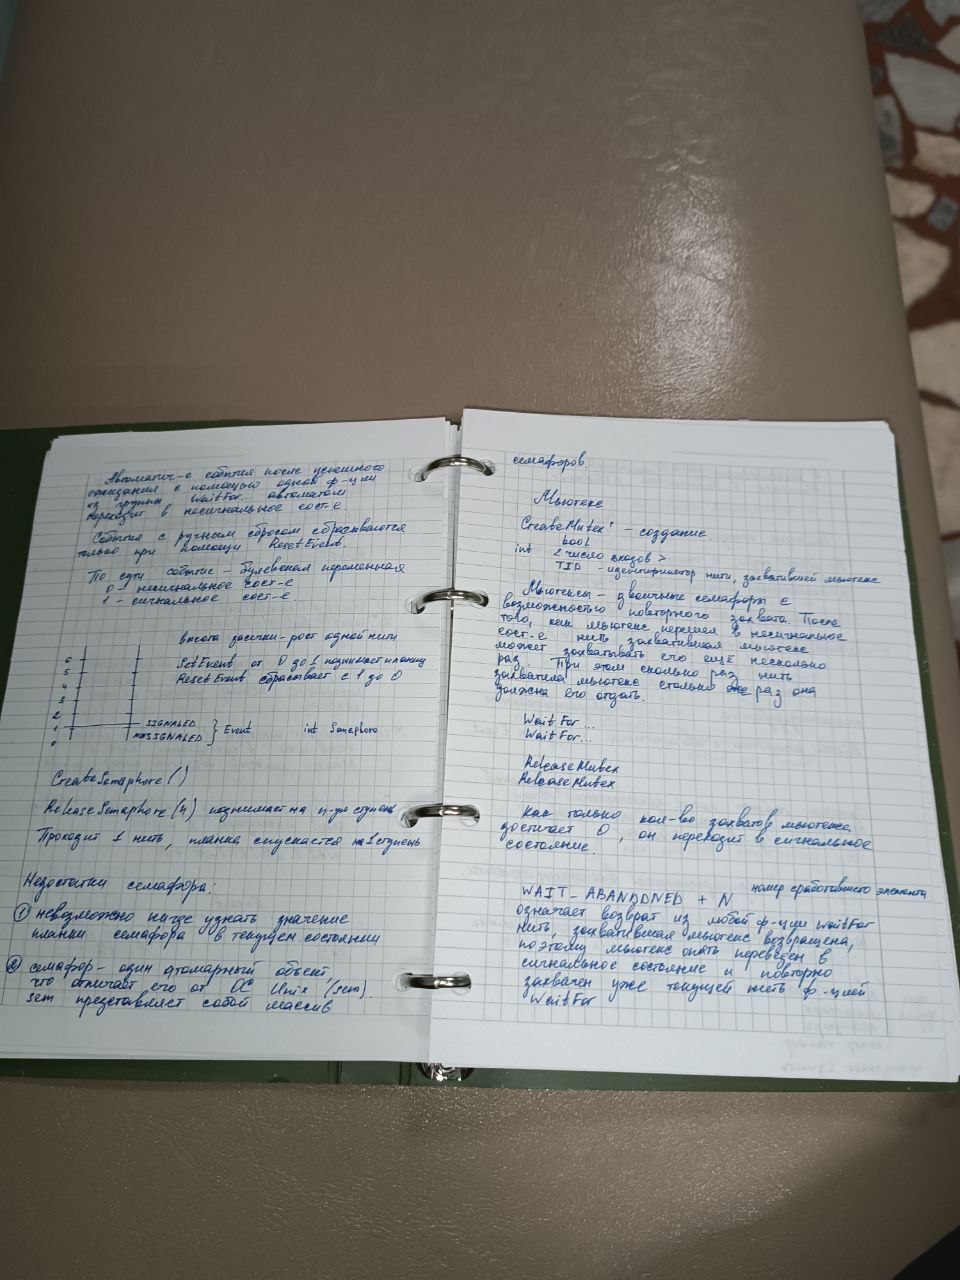 Автоматич-е события после успешного
ожидания с помощью одной ф-ции
из группы WaitFor... автоматом
переходит в несигнальное сост-е
События с ручным сбросом сбрасываются
только при помощи ResetEvent.
По сути событие - булевская переменная
0 - несигнальное сост-е
1 - сигнальное сост-е.
высота засечки - рост одной нити
SetEvent от 0 до 1 поднимает планку
ResetEvent сбрасывает с 1 до 0
6
5
4
3
2
1
0
SIGNALED
SIGNALED } Event int Semaphore
CreateSemaphore()
ReleaseSemaphore(n) поднимает на n-ую ступень
Проходит 1 нить, планка спускается на 1 ступень
Недостатки семафора:
① невозможно нигде узнать значение
планки семафора в текущем состоянии
② семафор - один атомарный объект,
что отличает его от ОС Unix (sem).
sem представляет собой массив
семафоров.
Мьютекс
CreateMutex - создание
bool
int <число входов>
TID - идентификатор нити, захватившей мьютекс
Мьютексы - двоичные семафоры с
возможностью повторного захвата. После
того, как мьютекс перешел в несигнальное
сост-е нить захватившая мьютекс
может захватывать его ещё несколько
раз. При этом сколько раз нить
захватила мьютекс столько же раз она
должна его отдать.
WaitFor...
WaitFor...
ReleaseMutex
ReleaseMutex
Как только кол-во захватов мьютекса
достигает 0, он переходит в сигнальное
состояние.
WAIT_ABANDONED + N номер сработавшего элемента
означает возврат из любой ф-ции WaitFor
нить, захватившая мьютекс возвращена,
поэтому мьютекс опять переведен в
сигнальное состояние и повторно
захвачен уже текущей нить ф-цией
WaitFor